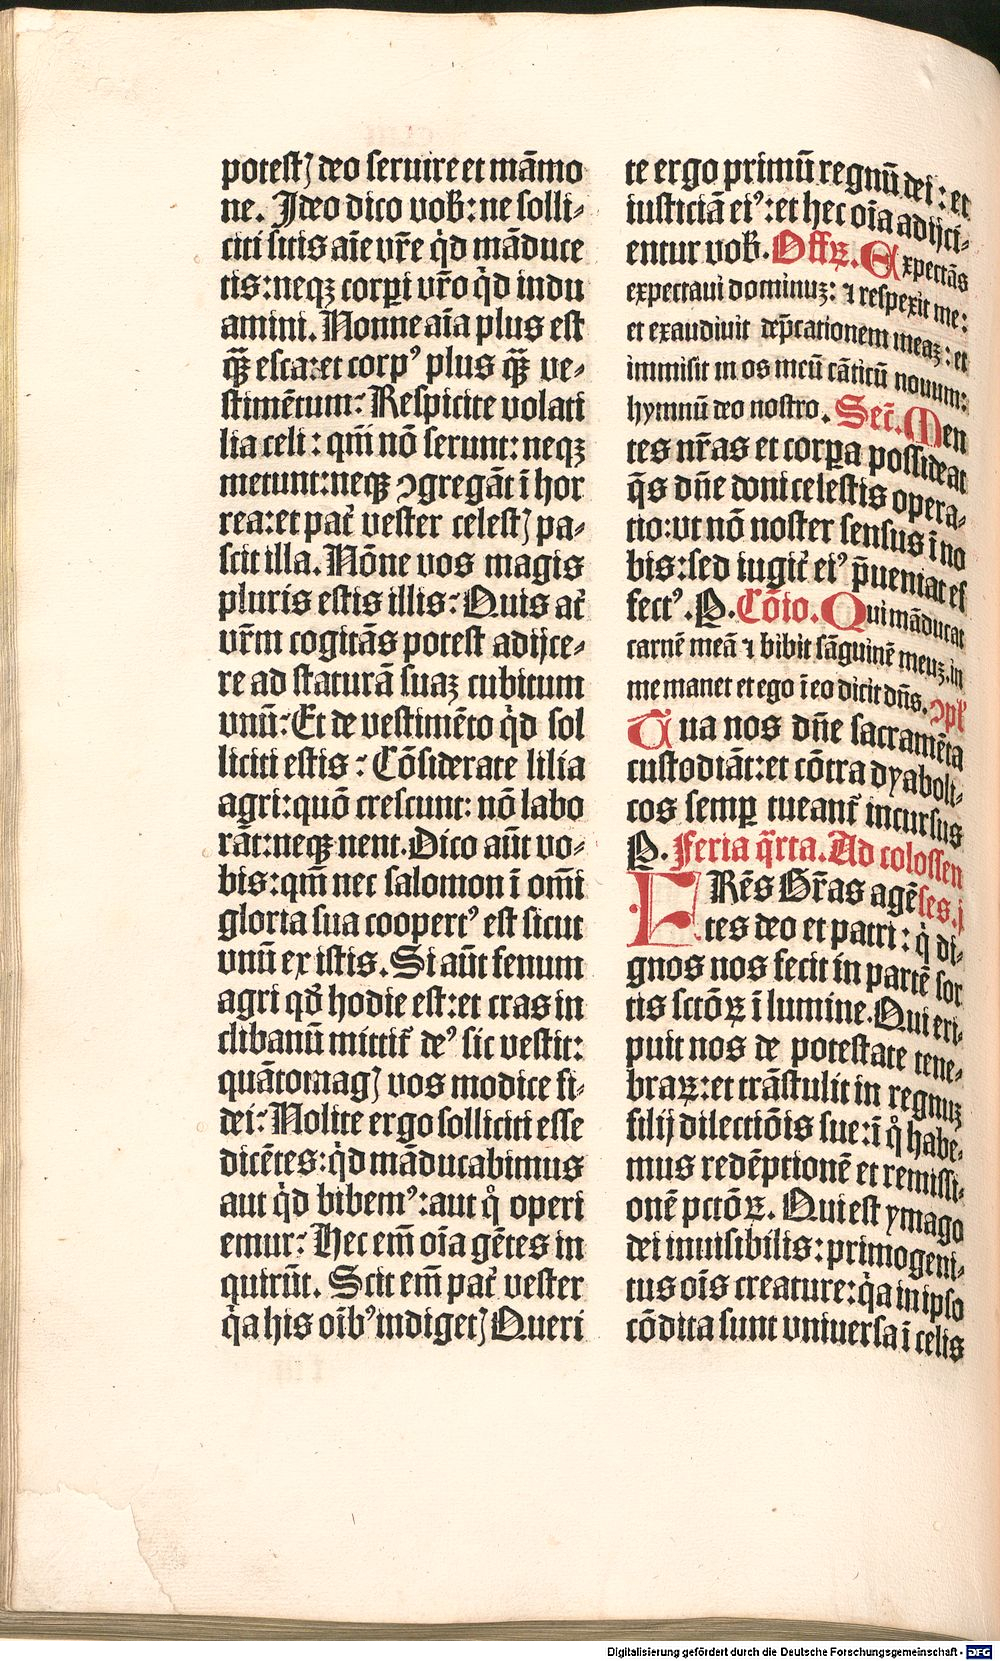 potestꝭ deo seruire et mãmo
ne. Ideo dico vob̃: ne solli⸗
citi sitis aĩe vr̃e qd̃ mãduce
tis: neqꝫ corpi vr̃o qd̃ indu
amini. Nonne aĩa plus est
qȝ̃ esca: et corpꝰ plus qȝ̃ ve⸗
stimẽtum: Respicite volati
lia celi: qm̃ nõ serunt: neqꝫ
metunt: neqꝫ ꝯgregãt ĩ hor
rea: et pat̃ vester celestꝭ pa⸗
scit illa. Nõne vos magis
pluris estis illis: Quis at̃
vr̃m cogitãs potest adijce⸗
re ad staturã suaꝫ cubitum
vnũ: Et de vestimẽto qd̃ sol
liciti estis: Cõsiderate lilia
agri: quõ crescunt: nõ labo
rãt: neqꝫ nent. Dico aũt vo⸗
bis: qm̃ nec salomon ĩ om̃i
gloria sua coopertꝰ est sicut
vnũ ex istis. Si aũt fenum
agri qd̃ hodie est: et cras in
clibanũ mittit̃ deꝰ sic vestit:
quãtomagꝭ vos modice fi⸗
dei: Nolite ergo solliciti esse
dicẽtes: qd̃ mãducabimus
aut qd̃ bibemꝰ: aut qͦ operi
emur: Hec em̃ oĩa gẽtes in
quirũt. Scit em̃ pat̃ vester
q̃a his oĩbꝰ indigetꝭ Queri
te ergo primũ regnũ dei: et
iusticiã eiꝰ: et hec oĩa adijci⸗
entur vob̃. Offꝝ. Expectãs
expectaui dominuꝫ: ⁊ respexit me:
et exaudiuit dep̃cationem meaꝫ: et
immisit in os meũ cãticũ nouum:
hymnũ deo nostro. Sec̃. Men
tes nr̃as et corpa possideat
q̃s dñe doni celestis opera⸗
tio: vt nõ noster sensus ĩ no
bis: sed iugit̃ eiꝰ p̃ueniat ef
fectꝰ. P. Cõio. Qui mãducat
carnẽ meã ⁊ bibit sãguinẽ meuꝫ. in
me manet et ego ĩ eo dicit dñs. ꝯpl̃
Tua nos dñe sacramẽta
custodiãt: et cõtra dyaboli⸗
cos semp tueant̃ incursus
P. Feria q̃rta. Ad colossen
FRẽs Gr̃as agẽ ses. j
tes deo et patri: q̃ di⸗
gnos nos fecit in partẽ sor
tis sctõꝝ ĩ lumine. Qui eri⸗
puit nos de potestate tene⸗
braꝝ: et trãstulit in regnuꝫ
filij dilectiõis sue: ĩ qͦ habe⸗
mus redẽptionẽ et remissi⸗
onẽ pctõꝝ. Qui est ymago
dei inuisibilis: primogeni⸗
tus oĩs creature: q̃a in ipso
cõdita sunt vniuersa ĩ celis
Digitalisierung gefördert durch die Deutsche Forschungsgemeinschaft - DFG